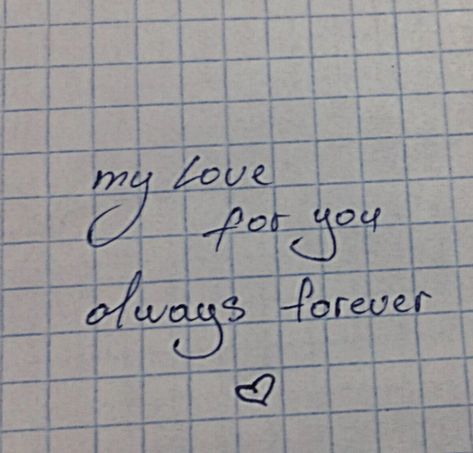 my love
for you
always forever
♡